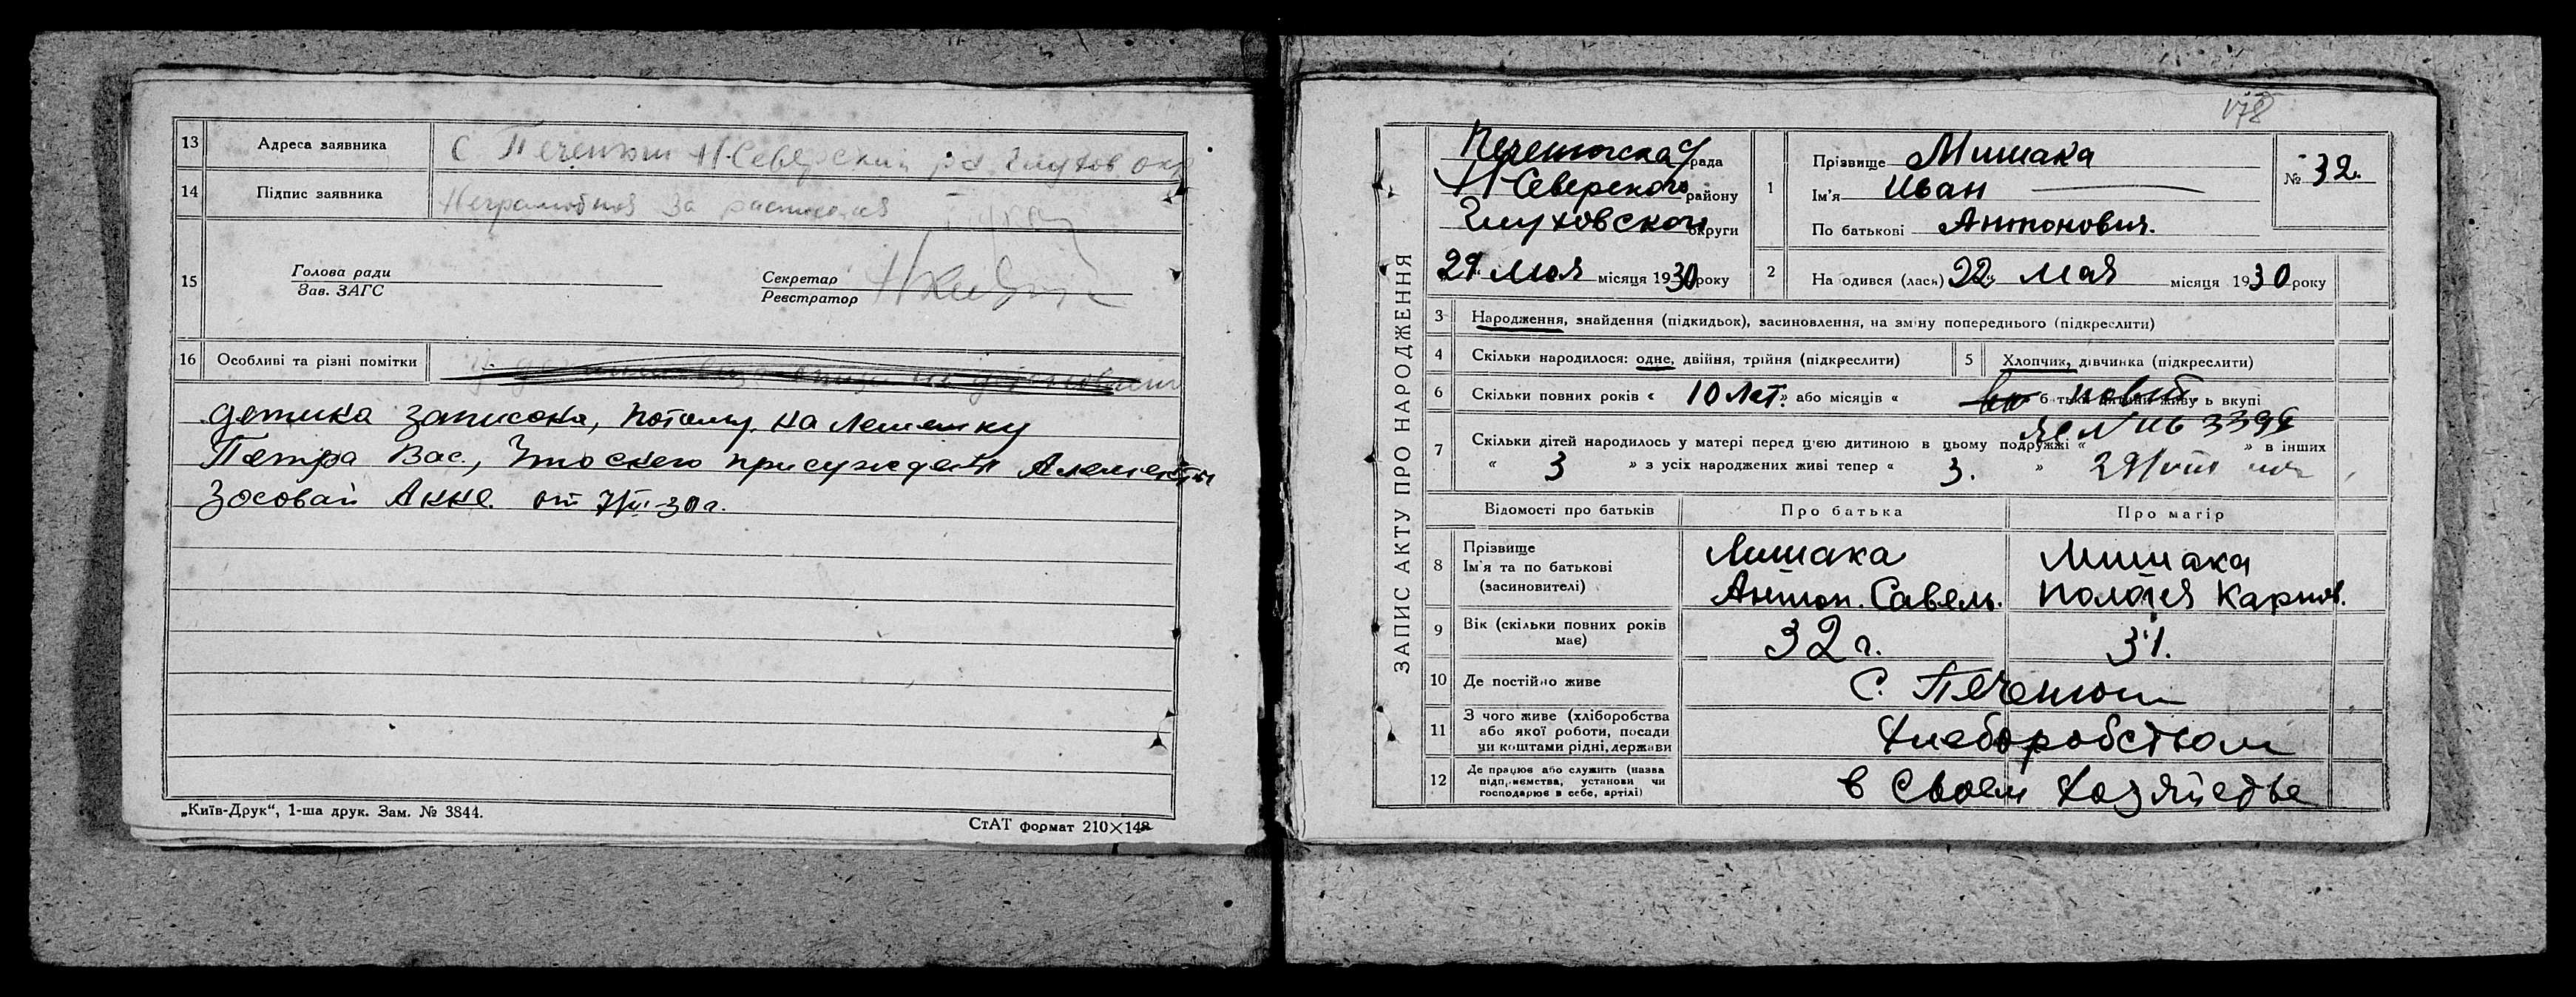 13 Адреса заявника С Печенюги Н-Северский р-н Глухов окр
14 Підпис заявника Неграмотная за
15 Голова ради
Зав. ЗАГС
Секретар
Реєстратор
16 Особливі та різні помітки
детика записана, потому на Лемешку
Петра Вас., что с него присуждени Алементы
Зосовай Анне. от 7/III-30 г.
„Київ-Друк“, 1-ша друк. Зам. № 3844.
СтАТ формат 210×148
178
ЗАПИС АКТУ ПРО НАРОДЖЕННЯ
Печенюгская с/рада
Н-Северского району
Глуховской округи
29 мая місяця 1930 року
1 Прізвище Мишака
Ім'я Иван
По батькові Антонович.
№ 32.
2 Народився (лась) „22“ мая місяця 1930 року
3 Народження, знайдення (підкидьок), засиновлення, на зміну попереднього (підкреслити)
4 Скільки народилося: одне, двійня, трійня (підкреслити)
5 Хлопчик, дівчинка (підкреслити)
6 Скільки повних років « 10 лет. » або місяців « батьки дитини живуть вкупі
7 Скільки дітей народилось у матері перед цією дитиною в цьому подружжі « » в інших
« 3 » з усіх народжених живі тепер « 3. »
Відомості про батьків Про батька Про матір
8 Прізвище
Ім'я та по батькові
(засиновителі)
Мишака
Антон. Савель.
Мишака
Карпов.
9 Вік (скільки повних років має) 32 г. 31.
10 Де постійно живе С. Печенюги
11 З чого живе (хліборобства
або якої роботи, посади
чи коштами рідні, держави
Хлеборобством
12 Де працює або служить (назва
підприємства, установи чи
господарює в себе, артілі)
в своем хозяйстве